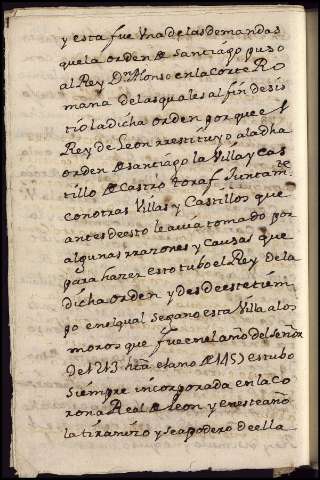 y esta fue Una de las demandas
que la orden de Santiago puso
al Rey Dn Alonso en la Corte Ro
mana de las quales al fin desis
tio la dicha orden por que el
Rey de Leon rrestituyo a la dha
orden de santiago la Villa y Cas
tillo de Castro toraf Juntamte
con otras Villas y Castillos que
antes desto le avia tomado por
algunas rrazones y causas que
para hazer esto tubo el Rey de la
dicha orden y desde este tiem
po en el qual se gano esta Villa a los
moros que fue en el año del Señor
de 1213 hta el año de 1453 estubo
siempre incorporada en la Co
rona Real de Leon y en este año
la tiranizo y se apodero de ella